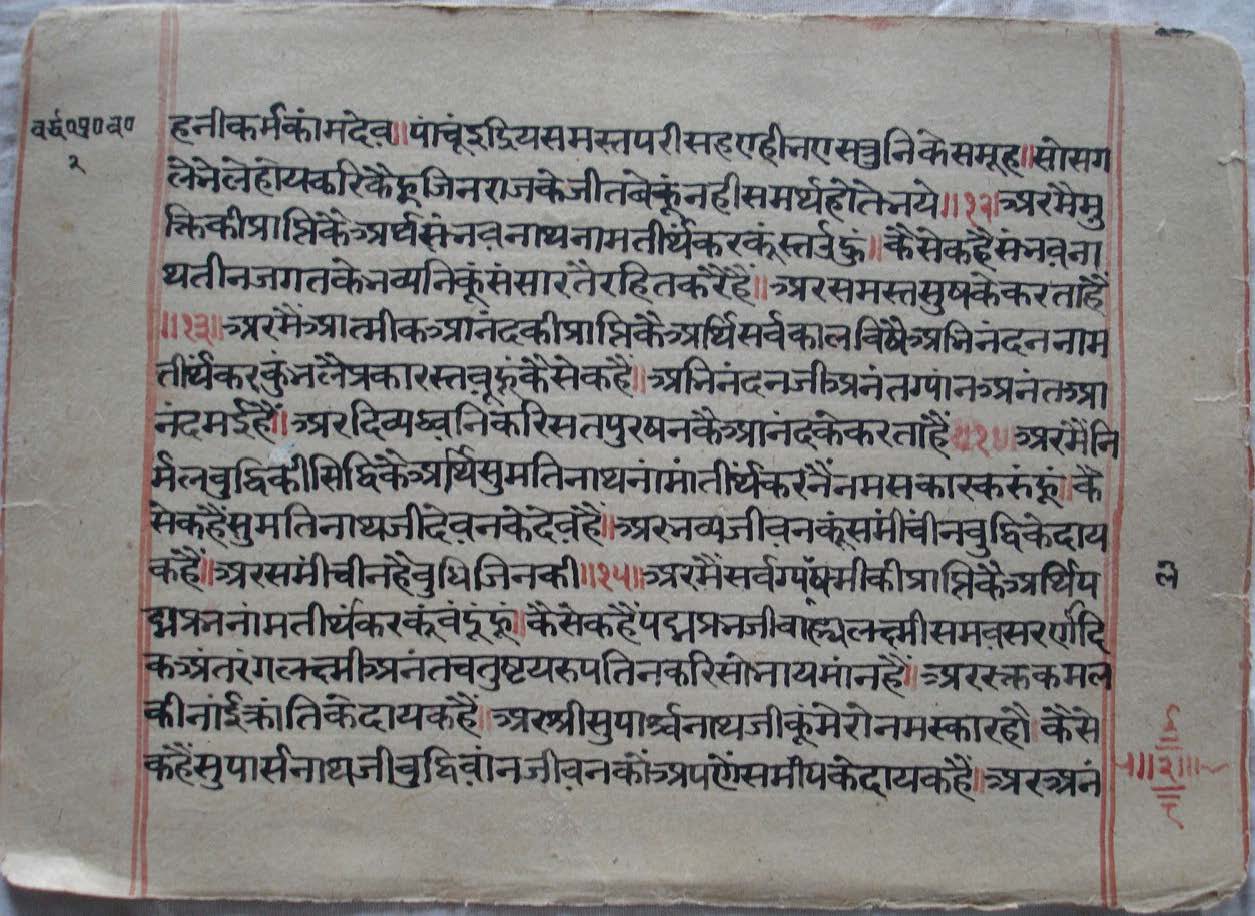 वर्द्ध०पु०व०
२
हनीकर्मकांमदेव॥पांचूंइंद्रियसमस्तपरीसहएहीनएसत्रुनिकेसमूह॥सोसग
लेनेलेहोयकरिकैहूजिनराजकेजीतबेकूंनहीसमर्थहोतेनये॥१२॥अरमैमु
क्तिकीप्राप्तिकेअर्थसंनवनाथनामतीर्थंकरकूंस्तउंहुं॥कैसेकहैसंनवना
थतीनजगतकेनव्यनिकूंसंसारतैरहितकरैहैं॥अरसमस्तसुषकेकरताहैं
॥१३॥अरमैंआत्मीकआनंदकीप्राप्तिकैअर्थिसर्वकालविषैअनिनंदननाम
तीर्थंकरकुंनलैप्रकारस्तवूहूंकैसेकहैं॥अनिनंदनजीअनंतग्यांनअनंतआ
नंदमईहैं॥अरदिव्यध्वनिकरिसतपुरषनकैआनंदकेकरताहैं॥अरमैंनि
र्मलबुद्धिकीसिद्धिकेअर्थिसुमतिनाथनांमांतीर्थंकरनैंनमसकारकरुंहूं॥कै
सेकहैंसुमतिनाथजीदेवनकेदेवहैं॥अरनव्यजीवनकूंसमींचींनबुद्धिकेदाय
कहैं॥अरसमींचीनहैबुधिजिनकी॥१५॥अरमैंसर्वग्यकीप्राप्तिकैअर्थिप
द्मप्रननांमतीर्थंकरकूंवंदूंहूं॥कैसेकहैंपद्मप्रनजीबाह्यलक्ष्मीसमवसरणदि
कअंतरंगलक्ष्मीअनंतचतुष्टयरुपतिनकरिसोनायमांनहैं॥अररक्तकमल
ले
कीनांईक्रांतिकेदायकहैं॥अरश्रीसुपार्श्वनाथजीकूंमेरोनमस्कारहौ॥कैसे
कहैंसुपार्सनाथजीबुद्धिवांनजीवनकौंअपणेंसमीपकेदायकहैं॥अरअनं
॥२॥